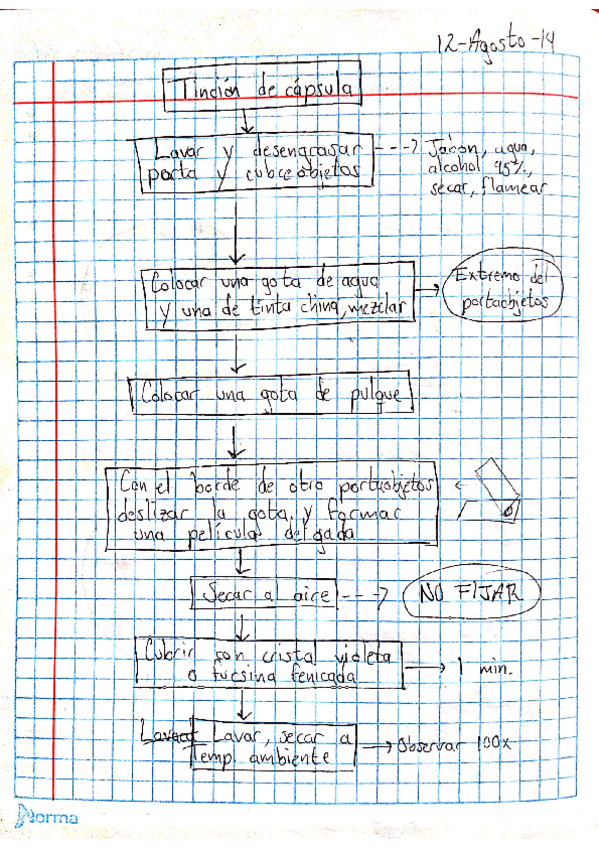 12-Agosto-14
Tinción de cápsula
Lavar y desengrasar
porta y cubreobjetos
Jabón, agua,
alcohol 95%,
secar, flamear
Colocar una gota de agua
y una de tinta china, mezclar
Extremo del
portaobjetos
Colocar una gota de pulque
Con el borde de otro portaobjetos
deslizar la gota y formar
una película delgada
Secar al aire
NO FIJAR
Cubrir con cristal violeta
o fucsina fenicada
1 min.
Lavar, secar a
Temp. ambiente
Observar 100x
Norma